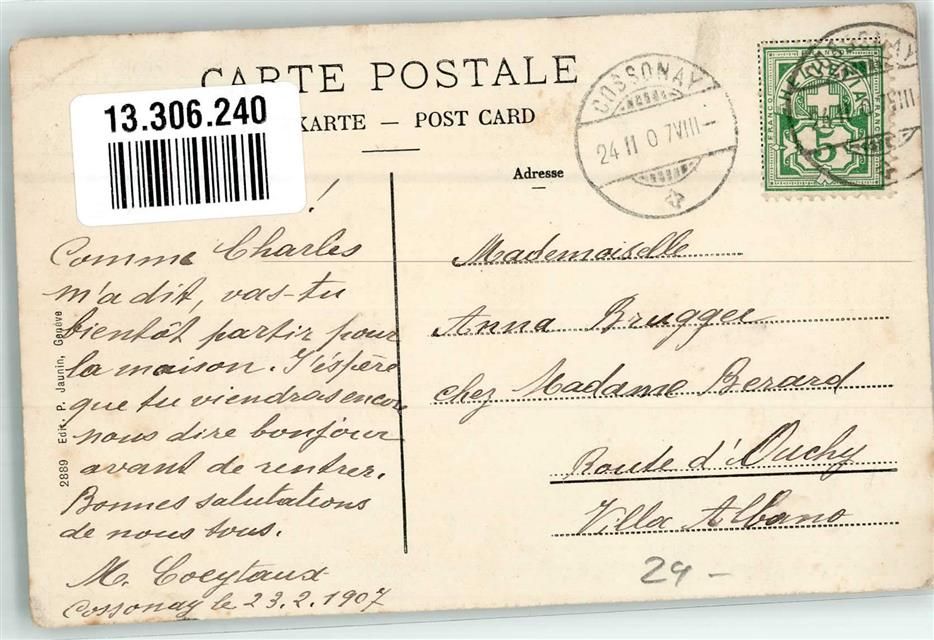 CARTE POSTALE
13.306.240
KARTE — POST CARD
Adresse
COSSONAY
24 II 07 VIII —
HELVETIA
FRANCO
FRANCO
5
!
Comme Charles
m'a dit, vas-tu
bientôt partir pour
la maison. J'éspère
que tu viendras encor
nous dire bonjour
avant de rentrer.
Bonnes salutations
de nous tous.
M. Coeytaux
Cossonay le 23.2.1907
Mademoiselle
Anna Brugger
chez Madame Berard
Route d'Ouchy
Villa Albano
24 –
2889 Edit. P. Jaunin, Genève